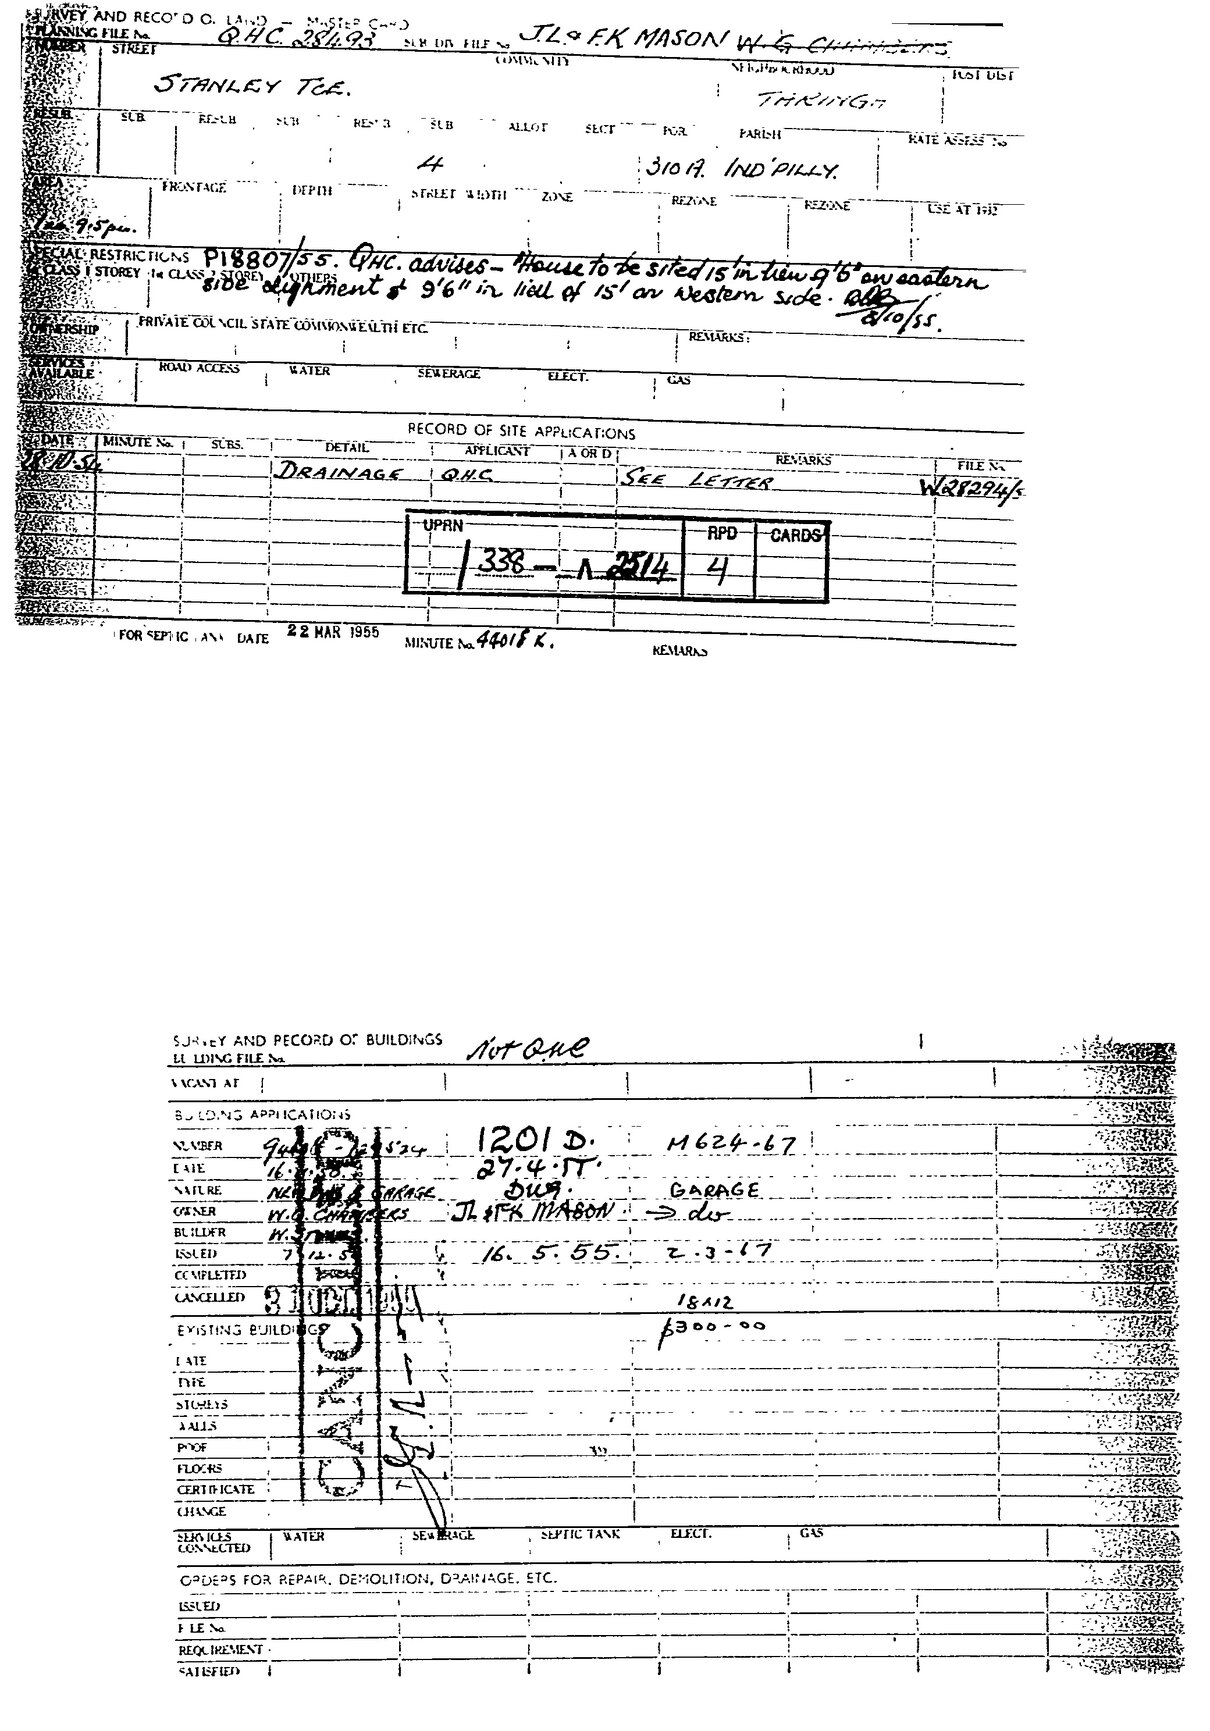 SURVEY AND RECORD OF LAND — MASTER CARD
PLANNING FILE No. Q.H.C. 28493 SUB DIV. FILE No. J.L. & F.K MASON W. G. CHAMBERS
NUMBER STREET COMMUNITY NEIGHBOURHOOD POST DIST
STANLEY TCE. TARINGA
RESUB. SUB. RESUB SUB RESUB SUB ALLOT SECT POR. PARISH RATE ASSESS No
4 310A. IND'PILLY.
AREA FRONTAGE DEPTH STREET WIDTH ZONE REZONE REZONE USE AT 1932
9.5 per.
SPECIAL RESTRICTIONS P18807/55. QHC. advises — "House to be sited 15' in lieu 9'6" on eastern
1st CLASS 1 STOREY 1st CLASS 2 STOREY OTHERS
side alignment & 9'6" in lieu of 15' on western side.
8/10/55.
OWNERSHIP PRIVATE COUNCIL STATE COMMONWEALTH ETC. REMARKS:
SERVICES AVAILABLE ROAD ACCESS WATER SEWERAGE ELECT. GAS
RECORD OF SITE APPLICATIONS
DATE MINUTE No. SUBS. DETAIL APPLICANT A OR D REMARKS FILE No.
28.10.54 DRAINAGE Q.H.C. SEE LETTER W28294/5
UPRN RPD CARDS
338 — 2514 4
FOR SEPTIC TANK DATE 22 MAR 1955 MINUTE No. 44018 K. REMARKS
SURVEY AND RECORD OF BUILDINGS
BUILDING FILE No. Not QHC
VACANT AT
BUILDING APPLICATIONS
NUMBER 1201 D. M624-67
DATE 27.4.55.
NATURE NEW GARAGE Dwg. GARAGE
OWNER W.G. CHAMBERS JL & FK MASON. → do
BUILDER
ISSUED 16. 5. 55. 2.3-67
COMPLETED
CANCELLED 18x12
$300-00
EXISTING BUILDINGS
DATE
TYPE
STOREYS
WALLS
ROOF
FLOORS
CERTIFICATE
CHANGE
CANCELLED
SERVICES CONNECTED WATER SEWERAGE SEPTIC TANK ELECT. GAS
ORDERS FOR REPAIR, DEMOLITION, DRAINAGE, ETC.
ISSUED
FILE No.
REQUIREMENT
SATISFIED